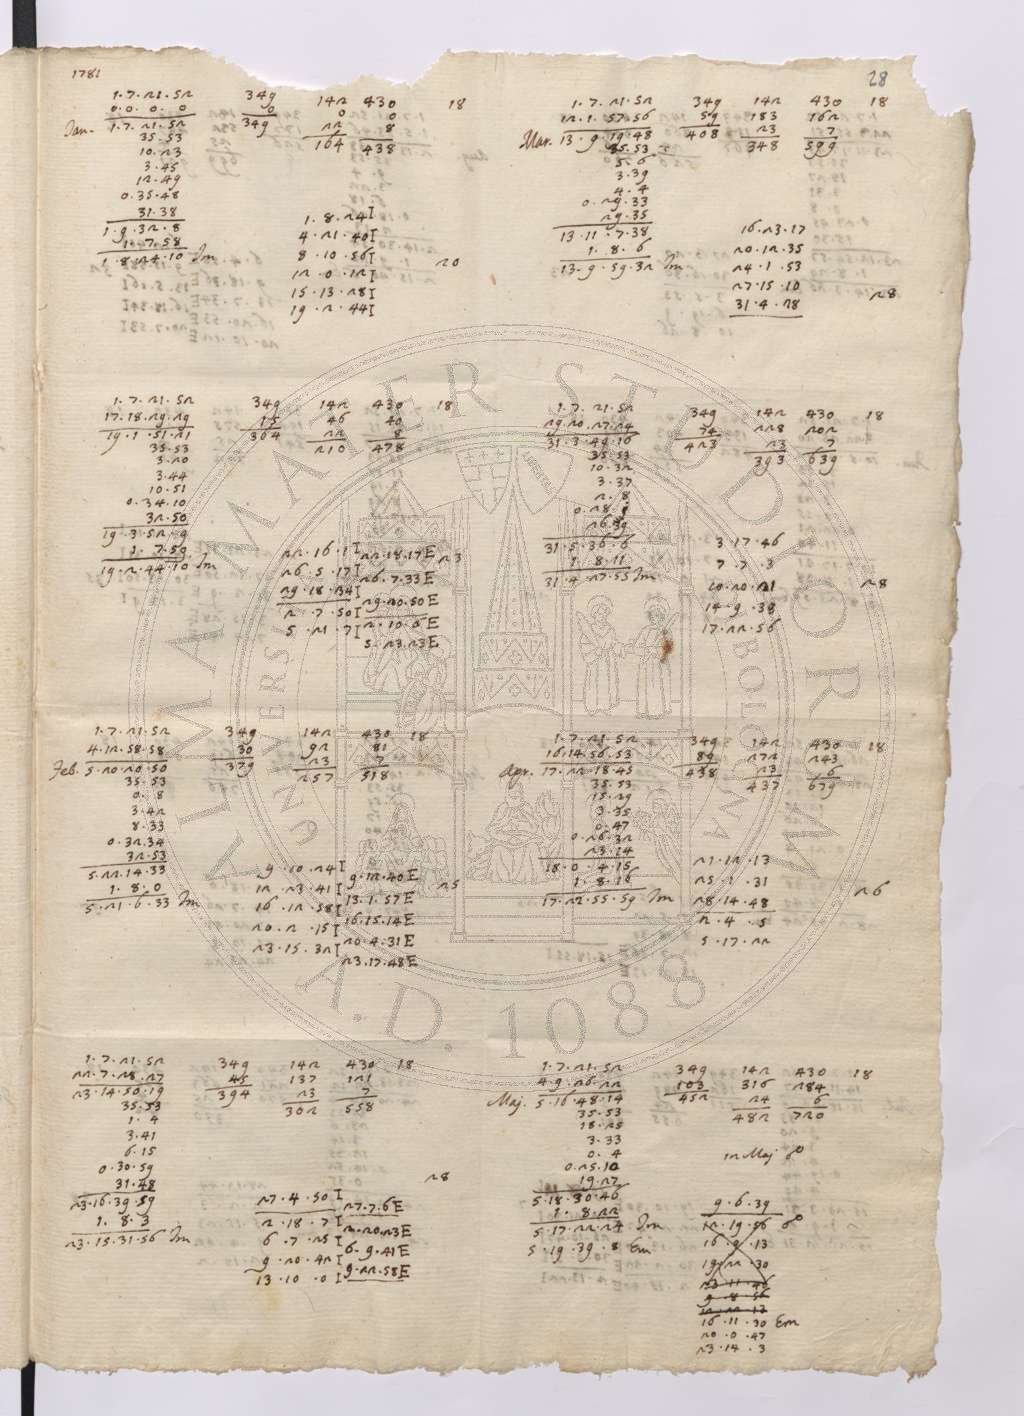 1781
28
1·7·21·52 349 142 430 18
0.0.0.0 0 0 0
Jan. 1·7·21·52 349 22 8
35·53 164 438
10·23
3·45
12·49
0·35·48
31·38
1·9·32·8
1·7·58
1·8·24·10 Im
1·8·24 I
4·21·40 I
8·10·56 I
12·0·12 I
15·13·28 I
19·2·44 I
20
1·7·21·52 349 142 430 18
17·18·29·29 15 46 40
19·1·51·21 364 22 8
35·53 210 478
3·20
3·44
10·51
0·34·10
32·50
19·3·52·9
1·7·59
19·2·44·10 Im
22·16·1 I 22·18·17 E 23
26·5·17 I 26·7·33 E
29·18·34 I 29·20·50 E
2·7·50 I 2·10·6 E
5·21·7 I 5·23·23 E
1·7·21·52 349 142 430 18
4·12·58·58 30 92 81
Feb. 5·20·20·50 379 23 7
35·53 257 518
0·8
3·42
8·33
0·32·34
32·53
5·22·14·33
1·8·0
5·21·6·33 Im
9·10·24 I 9·12·40 E
12·23·41 I 13·1·57 E 25
16·12·58 I 16·15·14 E
20·2·15 I 20·4·31 E
23·15·32 I 23·17·48 E
1·7·21·52 349 142 430 18
22·7·28·27 45 137 121
23·14·50·19 394 23 7
35·53 302 558
1·4
3·41
6·15
0·30·59
31·48
23·16·39·59
1·8·3
23·15·31·56 Im
28
27·4·50 I 27·7·6 E
2·18·7 I 2·20·23 E
6·7·25 I 6·9·41 E
9·20·42 I 9·22·58 E
13·10·0 I
1·7·21·52 349 142 430 18
12·1·57·56 59 183 162
Mar. 13·9·19·48 408 23 7
35·53 348 599
5·6
3·39
4·4
0·29·33
29·35
13·11·7·38
1·8·6
13·9·59·32 Im
16·23·17
20·12·35
24·1·53
27·15·10
31·4·28
28
1·7·21·52 349 142 430 18
29·20·27·24 74 228 202
31·3·49·16 423 23 7
35·53 393 639
10·32
3·37
2·8
0·28·1
26·39
31·5·36·6
1·8·11
31·4·27·55 Im
3·17·46
7·7·3
10·20·21
14·9·38
17·22·56
28
1·7·21·52 349 142 430 18
16·14·56·53 89 272 243
Apr. 17·22·18·45 438 23 6
35·53 437 679
15·29
3·35
0·47
0·26·32
23·14
18·0·4·15
1·8·16
17·22·55·59 Im
21·12·13
25·1·31
28·14·48
2·4·5
5·17·22
26
1·7·21·52 349 142 430 18
4·9·26·22 103 316 284
Maj. 5·16·48·14 452 24 6
35·53 482 720
18·25
3·33
0·4
0·25·10
19·27
5·18·30·46
1·8·22
5·17·22·24 Im
5·19·39·8 Em
in Maj ☍
9·6·39
12·19·56 ☍
16·9·13
19·22·30
23·11·46
9·8·56
12·22·13
16·11·30 Em
20·0·47
23·14·3
ALMA MATER STUDIORUM
UNIVERSITAS BOLOGNA
LIBERTAS
A.D. 1088